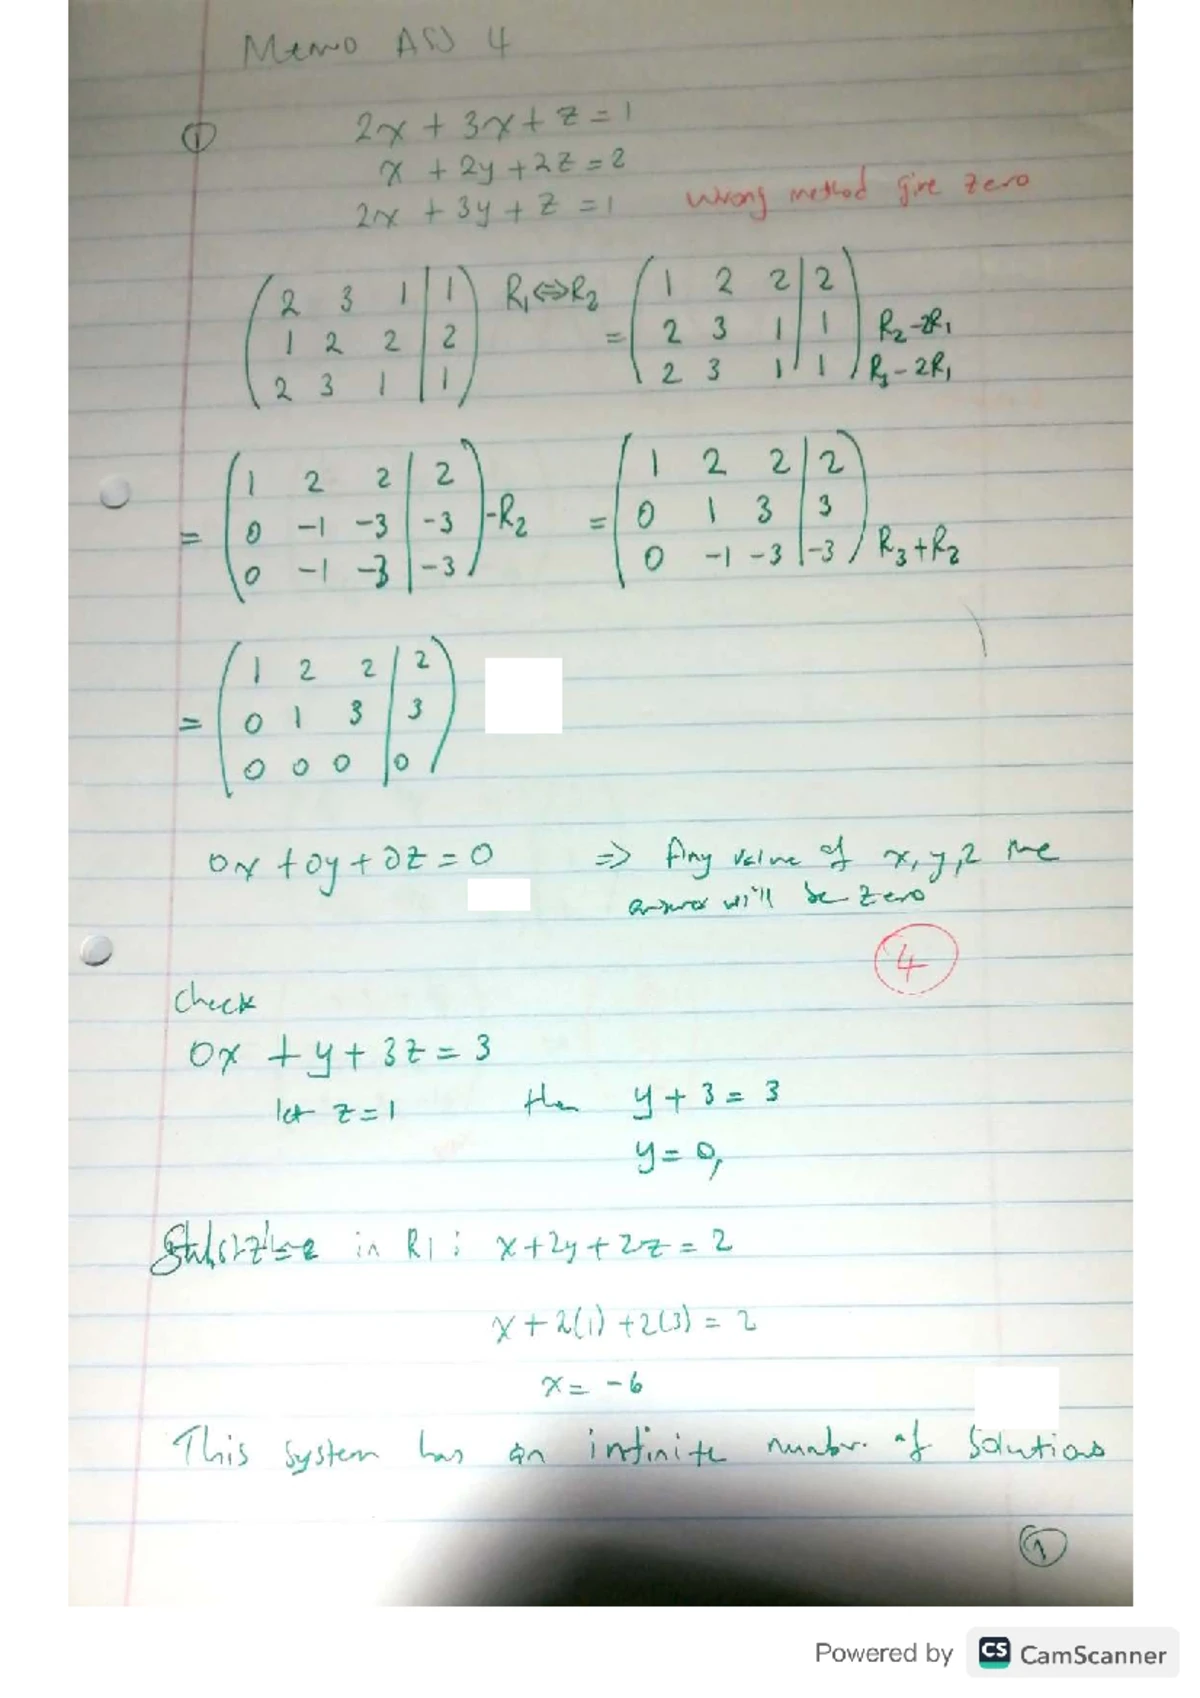 Memo ASS 4
① 2x + 3x + z = 1
x + 2y + 2z = 2
2x + 3y + z = 1 wrong method give zero
( 2 3 1 | 1 ) R₁⇔R₂ ( 1 2 2 | 2 )
( 1 2 2 | 2 ) = ( 2 3 1 | 1 ) R₂-2R₁
( 2 3 1 | 1 ) ( 2 3 1 | 1 ) R₃-2R₁
( 1 2 2 | 2 ) ( 1 2 2 | 2 )
= ( 0 -1 -3 | -3 ) -R₂ = ( 0 1 3 | 3 )
( 0 -1 -3 | -3 ) ( 0 -1 -3 | -3 ) R₃+R₂
( 1 2 2 | 2 )
= ( 0 1 3 | 3 )
( 0 0 0 | 0 )
0x + 0y + 0z = 0 => Any value of x, y, z the
answer will be zero
④
Check
0x + y + 3z = 3
let z = 1 then y + 3 = 3
y = 0,
in R1 : x + 2y + 2z = 2
x + 2(1) + 2(3) = 2
x = -6
This system has an infinite number of solutions
①
Powered by CS CamScanner